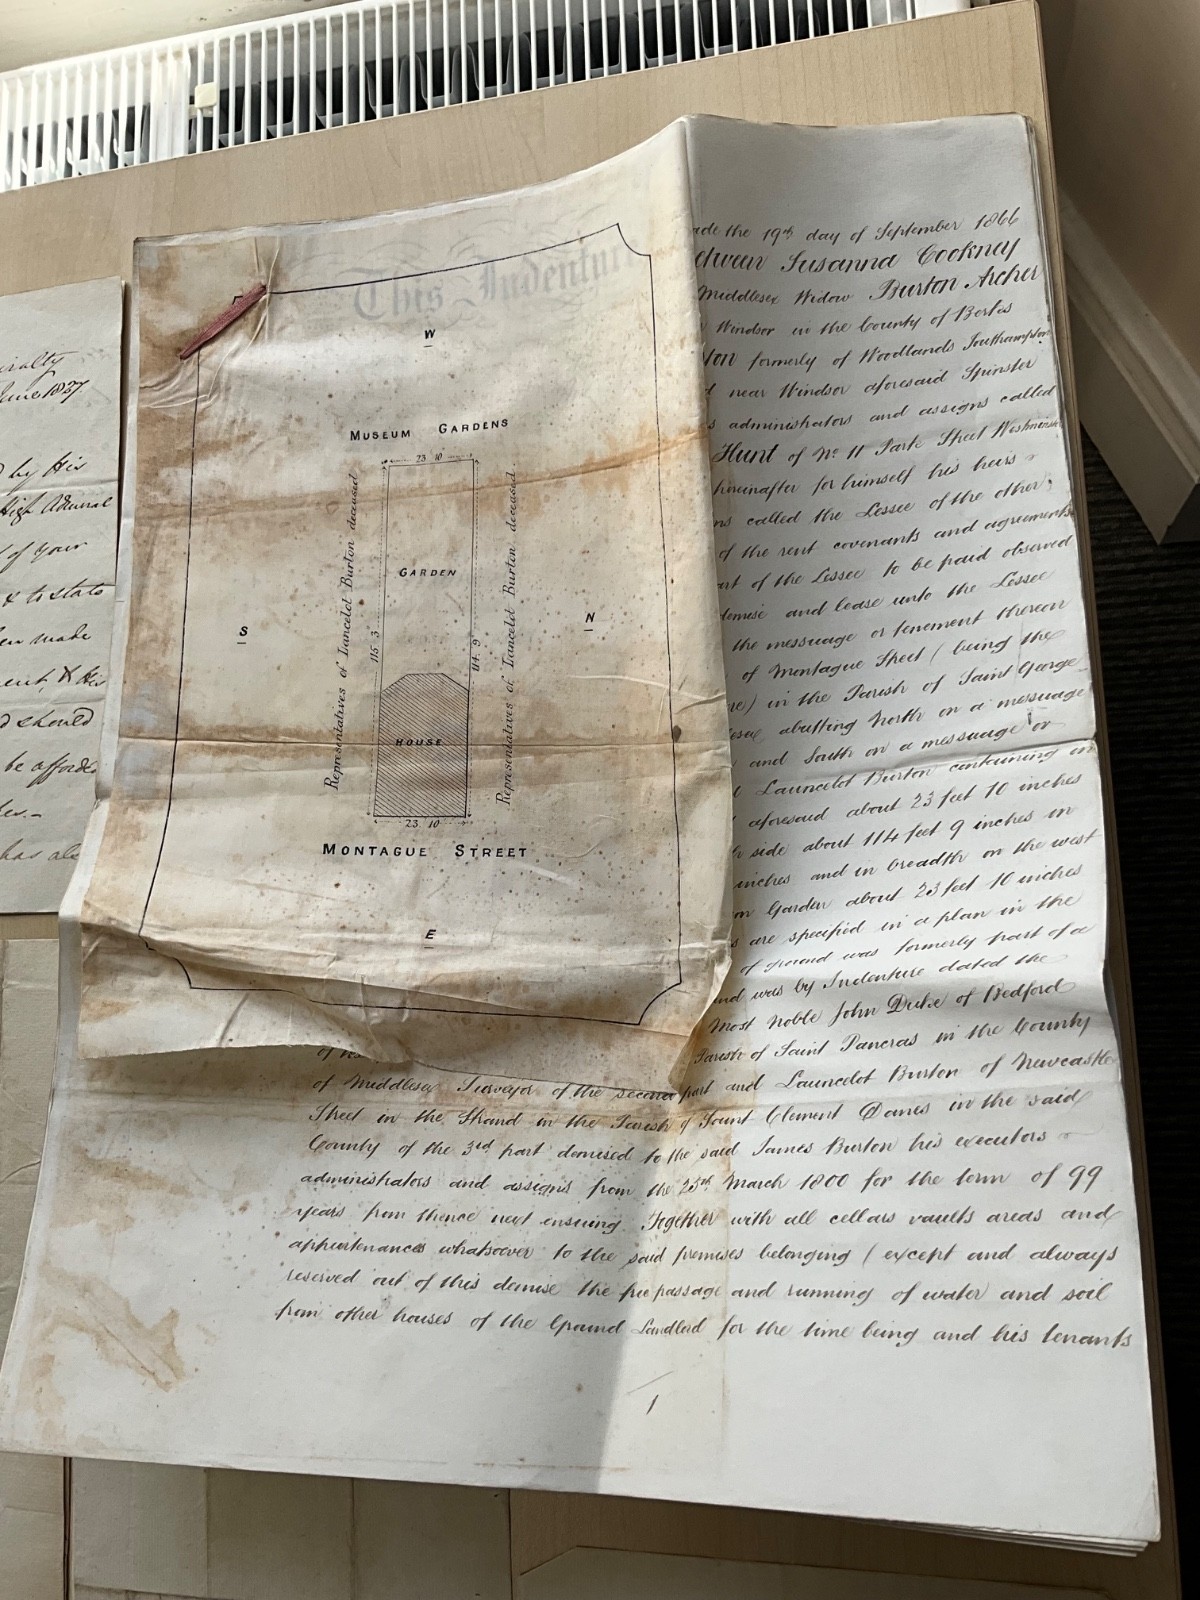 This Indenture
W
MUSEUM GARDENS
23 10
GARDEN
Representatives of Lancelot Burton deceased
Representatives of Lancelot Burton deceased.
115 3
114 9
S
N
HOUSE
23. 10
MONTAGUE STREET
E
ade the 19th day of September 1866
etween Susanna Cookney
Middlesex Widow Burton Archer
Windsor in the County of Berks
ton formerly of Woodlands Southampton
near Windsor aforesaid Spinster
s administrators and assigns called
Hunt of No 11 Park Street Westminster
hereinafter for himself his heirs
ns called the Lessee of the other
of the rent covenants and agreements
art of the Lessee to be paid observed
demise and lease unto the Lessee
the messuage or tenement thereon
of Montague Street (being the
re) in the Parish of Saint George
lesex abutting North on a messuage
and South on a messuage or
d Launcelot Burton containing in
aforesaid about 23 feet 10 inches
h side about 114 feet 9 inches in
inches and in breadth on the west
m Garden about 23 feet 10 inches
s are specified in a plan in the
of ground was formerly part of a
and was by Indenture dated the
Most Noble John Duke of Bedford
Parish of Saint Pancras in the County
of Middlesex Surveyor of the second part and Launcelot Burton of Newcastle
Street in the Strand in the Parish of Saint Clement Danes in the said
County of the 3rd part demised to the said James Burton his executors
administrators and assigns from the 25th March 1800 for the term of 99
years from thence next ensuing Together with all cellars vaults areas and
appurtenances whatsoever to the said premises belonging (except and always
reserved out of this demise the free passage and running of water and soil
from other houses of the Ground Landlord for the time being and his tenants
1
June 1827
by His
High Admiral
of your
& to state
en made
ent, & His
d should
be afforded
has als